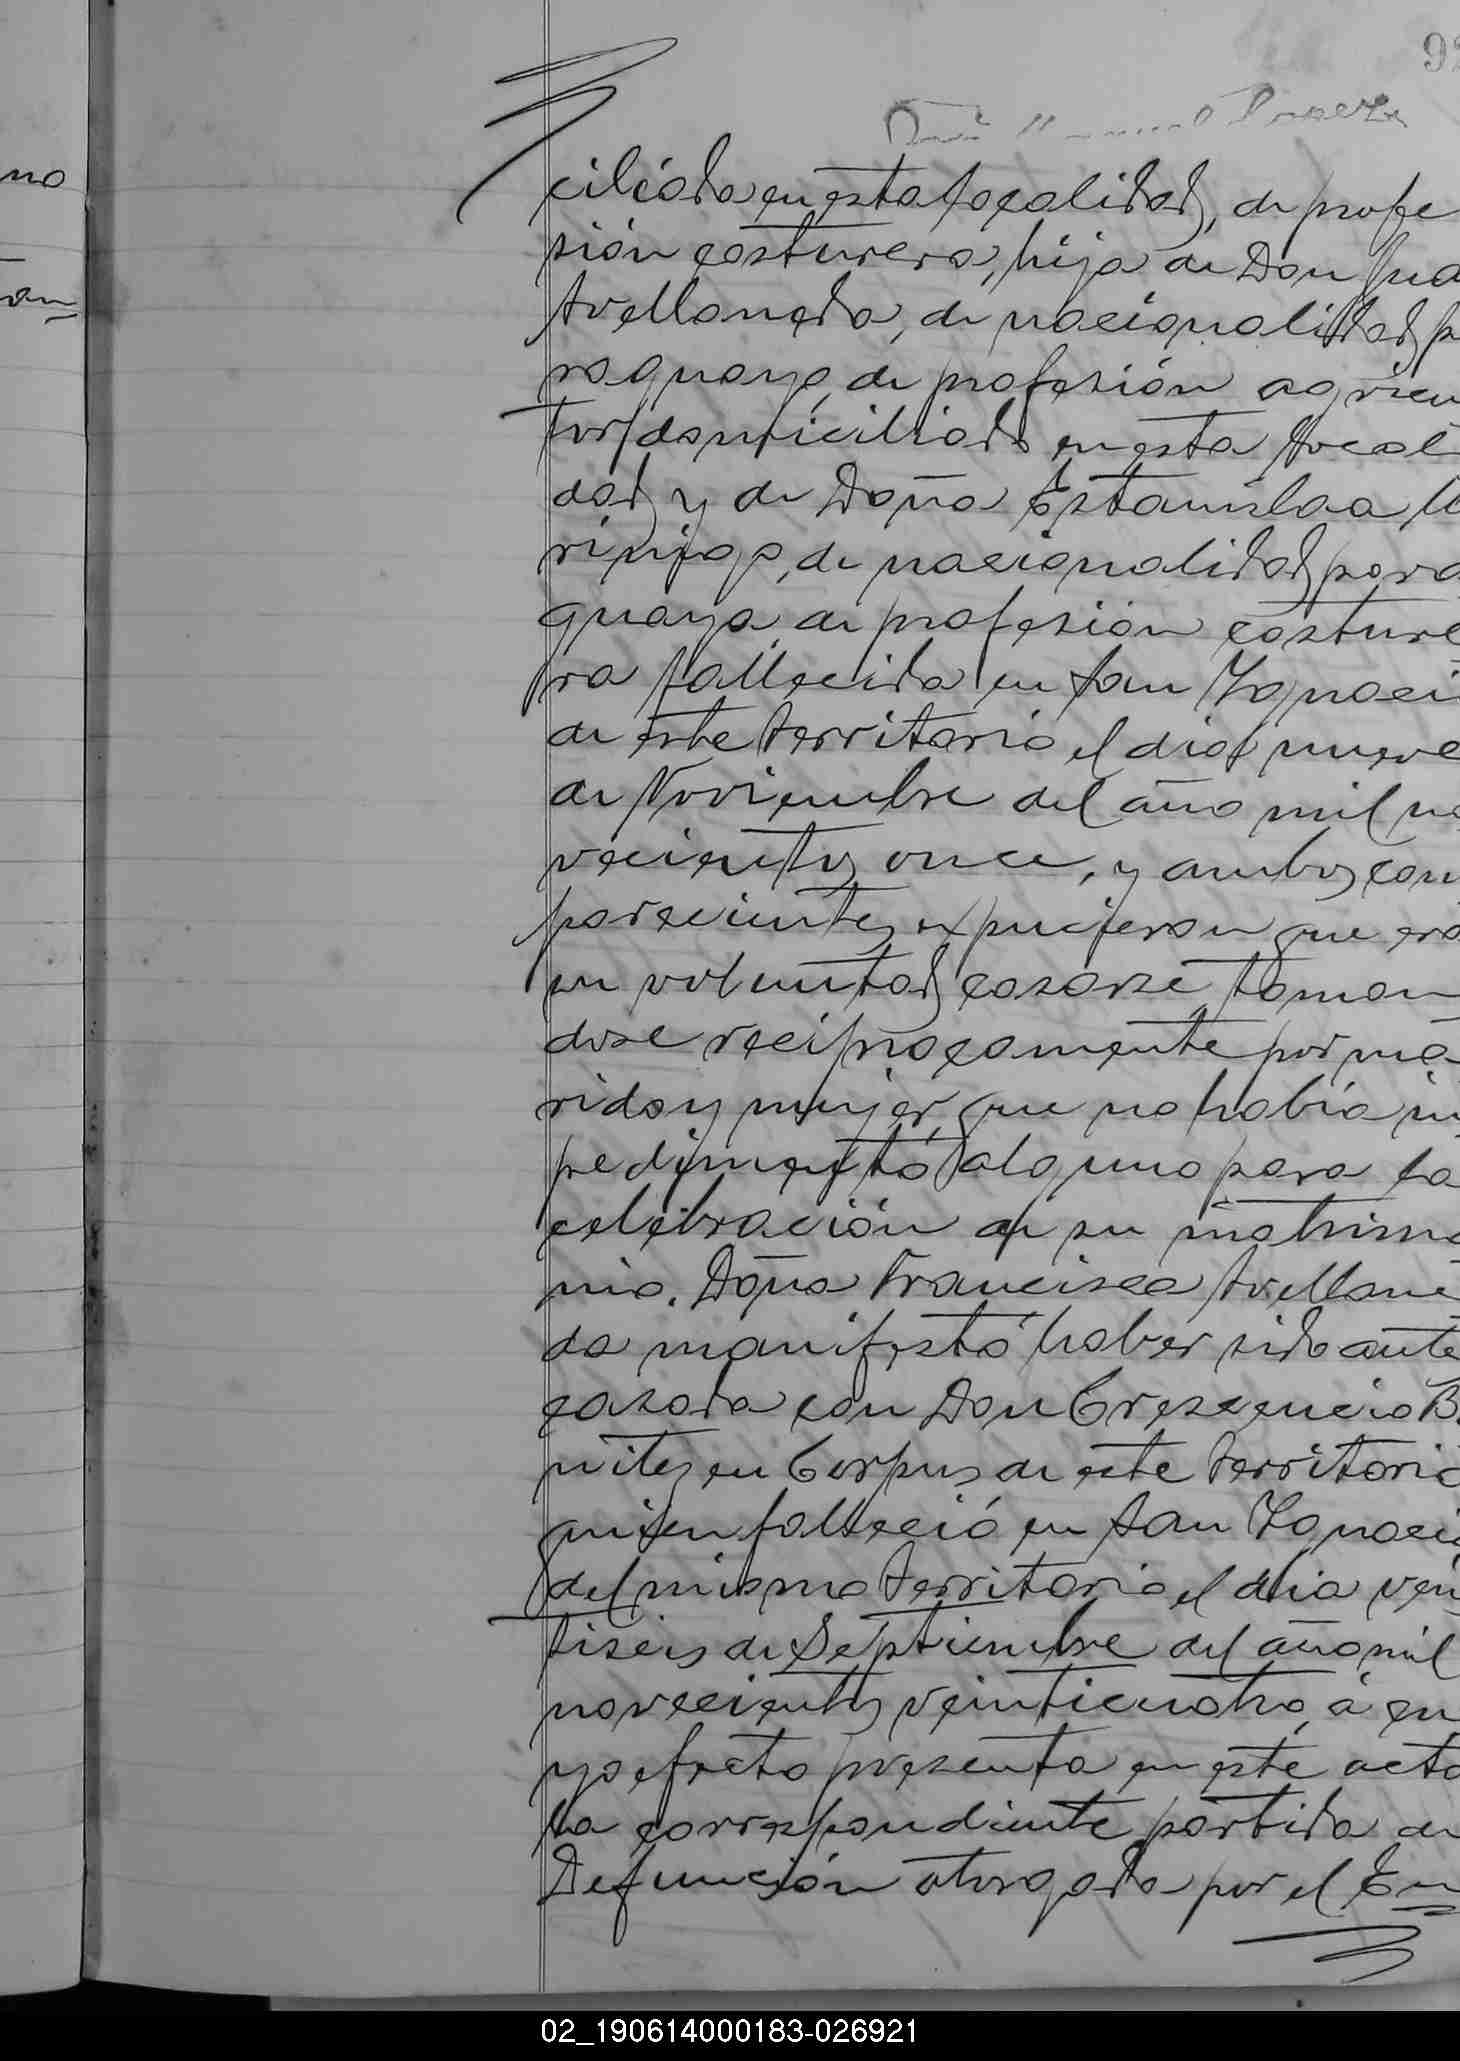 no
ciliada en esta localidad, de profe
sión costurera, hija de Don Jua
Avellaneda, de nacionalidad p
raguaya, de profesión agricu
tor, domiciliado en esta local
dad y de Doña Estanislao
de nacionalidad para
guaya, de profesión costure
ra fallecida en San Ygnaci
de este territorio el dia nueve
de Noviembre del año mil no
vecientos once, y ambos com
parecientes expucieron que era
su voluntad casarse toman
dose reciprocamente por ma
rido y mujer, que no habia im
pedimento alguno para la
celebración de su matrimo
nio. Doña Francisca Avellane
da manifestó haber sido ante
casada con Don Crescencio B
nites en Corpus de este territorio
quien falleció en San Ygnaci
del mismo territorio el dia vein
tiseis de Septiembre del año mil
novecientos veinticuatro, á cu
yo efecto presenta en este acto
la correspondiente partida de
Defunción otorgada por el En
02_190614000183-026921